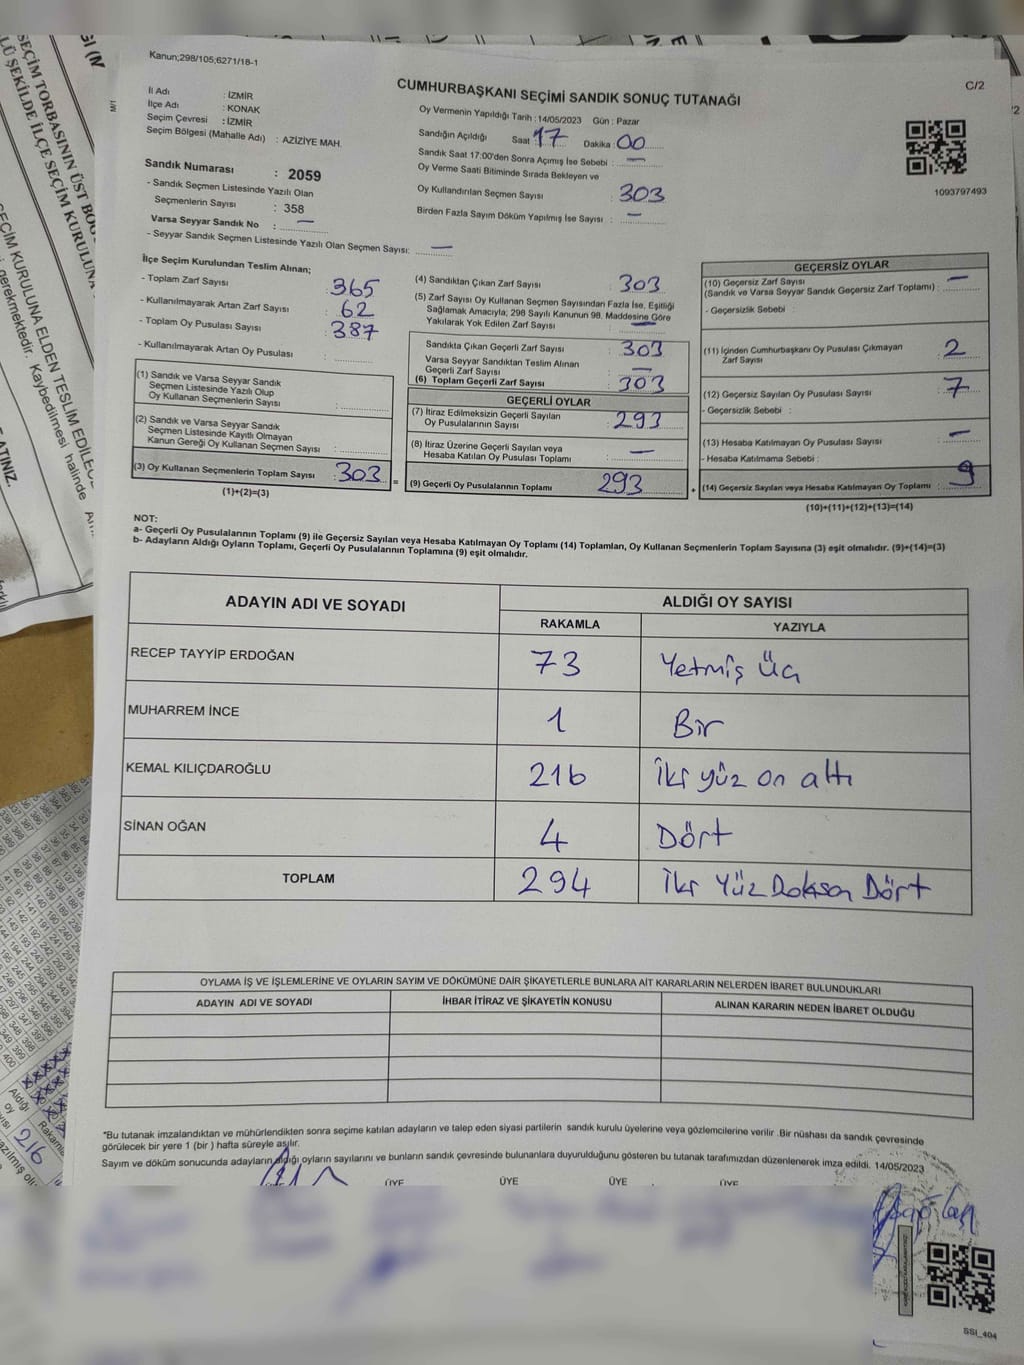 Kanun;298/105;6271/18-1
C/2
CUMHURBAŞKANI SEÇİMİ SANDIK SONUÇ TUTANAĞI
İl Adı : İZMİR
İlçe Adı : KONAK
Seçim Çevresi : İZMİR
Seçim Bölgesi (Mahalle Adı) : AZİZİYE MAH.
Sandık Numarası : 2059
- Sandık Seçmen Listesinde Yazılı Olan
Seçmenlerin Sayısı : 358
Varsa Seyyar Sandık No : —
- Seyyar Sandık Seçmen Listesinde Yazılı Olan Seçmen Sayısı: —
Oy Vermenin Yapıldığı Tarih : 14/05/2023 Gün : Pazar
Sandığın Açıldığı Saat : 17 Dakika : 00
Sandık Saat 17:00'den Sonra Açımış İse Sebebi : —
Oy Verme Saati Bitiminde Sırada Bekleyen ve
Oy Kullandırılan Seçmen Sayısı : 303
Birden Fazla Sayım Döküm Yapılmış İse Sayısı : —
1093797493
İlçe Seçim Kurulundan Teslim Alınan;
- Toplam Zarf Sayısı : 365
- Kullanılmayarak Artan Zarf Sayısı : 62
- Toplam Oy Pusulası Sayısı : 387
- Kullanılmayarak Artan Oy Pusulası :
(1) Sandık ve Varsa Seyyar Sandık
Seçmen Listesinde Yazılı Olup
Oy Kullanan Seçmenlerin Sayısı :
(2) Sandık ve Varsa Seyyar Sandık
Seçmen Listesinde Kayıtlı Olmayan
Kanun Gereği Oy Kullanan Seçmen Sayısı :
(3) Oy Kullanan Seçmenlerin Toplam Sayısı : 303
(1)+(2)=(3)
(4) Sandıktan Çıkan Zarf Sayısı : 303
(5) Zarf Sayısı Oy Kullanan Seçmen Sayısından Fazla İse, Eşitliği
Sağlamak Amacıyla; 298 Sayılı Kanunun 98. Maddesine Göre
Yakılarak Yok Edilen Zarf Sayısı : —
Sandıkta Çıkan Geçerli Zarf Sayısı : 303
Varsa Seyyar Sandıktan Teslim Alınan
Geçerli Zarf Sayısı : —
(6) Toplam Geçerli Zarf Sayısı : 303
GEÇERLİ OYLAR
(7) İtiraz Edilmeksizin Geçerli Sayılan
Oy Pusulalarının Sayısı : 293
(8) İtiraz Üzerine Geçerli Sayılan veya
Hesaba Katılan Oy Pusulası Toplamı : —
(9) Geçerli Oy Pusulalarının Toplamı : 293
GEÇERSİZ OYLAR
(10) Geçersiz Zarf Sayısı
(Sandık ve Varsa Seyyar Sandık Geçersiz Zarf Toplamı) : —
- Geçersizlik Sebebi :
(11) İçinden Cumhurbaşkanı Oy Pusulası Çıkmayan
Zarf Sayısı : 2
(12) Geçersiz Sayılan Oy Pusulası Sayısı : 7
- Geçersizlik Sebebi :
(13) Hesaba Katılmayan Oy Pusulası Sayısı : —
- Hesaba Katılmama Sebebi :
(14) Geçersiz Sayılan veya Hesaba Katılmayan Oy Toplamı : 9
(10)+(11)+(12)+(13)=(14)
NOT:
a- Geçerli Oy Pusulalarının Toplamı (9) ile Geçersiz Sayılan veya Hesaba Katılmayan Oy Toplamı (14) Toplamları, Oy Kullanan Seçmenlerin Toplam Sayısına (3) eşit olmalıdır. (9)+(14)=(3)
b- Adayların Aldığı Oyların Toplamı, Geçerli Oy Pusulalarının Toplamına (9) eşit olmalıdır.
ADAYIN ADI VE SOYADI ALDIĞI OY SAYISI
RAKAMLA YAZIYLA
RECEP TAYYİP ERDOĞAN 73 Yetmiş Üç
MUHARREM İNCE 1 Bir
KEMAL KILIÇDAROĞLU 216 İki yüz on altı
SİNAN OĞAN 4 Dört
TOPLAM 294 İki Yüz Doksan Dört
OYLAMA İŞ VE İŞLEMLERİNE VE OYLARIN SAYIM VE DÖKÜMÜNE DAİR ŞİKAYETLERLE BUNLARA AİT KARARLARIN NELERDEN İBARET BULUNDUKLARI
ADAYIN ADI VE SOYADI İHBAR İTİRAZ VE ŞİKAYETİN KONUSU ALINAN KARARIN NEDEN İBARET OLDUĞU
*Bu tutanak imzalandıktan ve mühürlendikten sonra seçime katılan adayların ve talep eden siyasi partilerin sandık kurulu üyelerine veya gözlemcilerine verilir .Bir nüshası da sandık çevresinde
görülecek bir yere 1 (bir ) hafta süreyle asılır.
Sayım ve döküm sonucunda adayların aldığı oyların sayılarını ve bunların sandık çevresinde bulunanlara duyurulduğunu gösteren bu tutanak tarafımızdan düzenlenerek imza edildi. 14/05/2023
ÜYE ÜYE ÜYE ÜYE
SSI_404